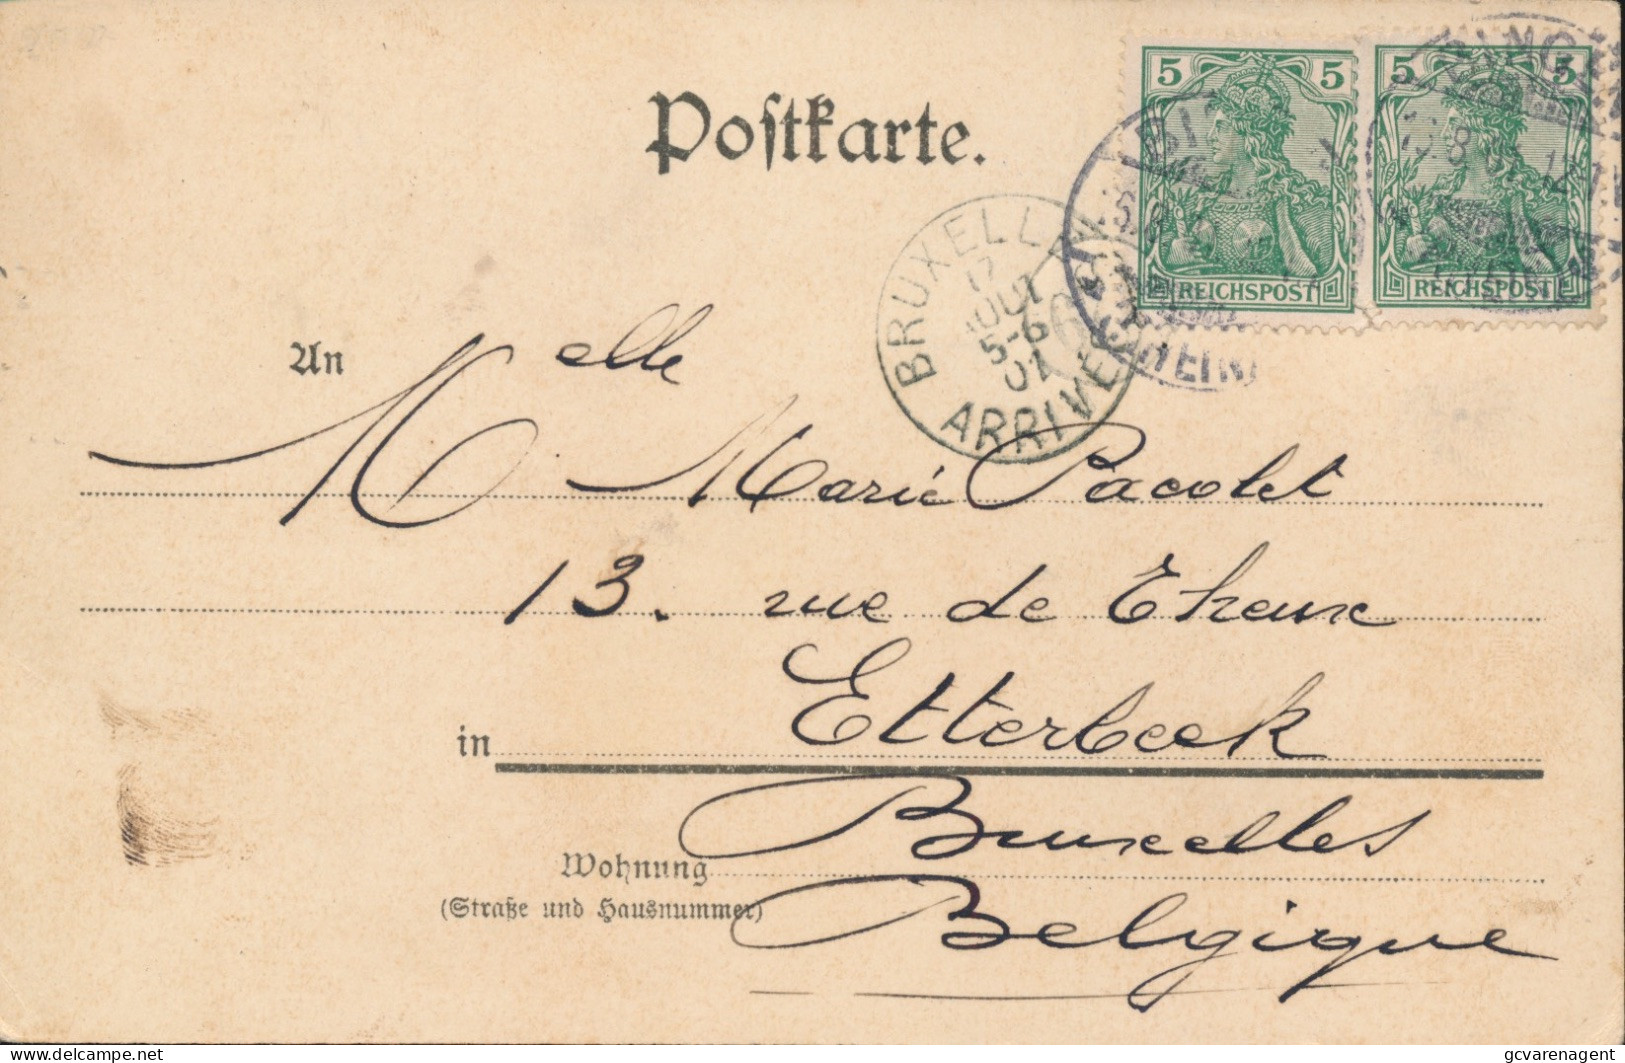 Postkarte.
5 5
REICHSPOST
5 5
REICHSPOST
BRUXELLES
17
AOUT
5-6
01
ARRIVEE
An
Melle Marie Pacolet
13. rue de Theux
in Etterbeek
Bruxelles
Wohnung
(Straße und Hausnummer)
Belgique
delcampe.net
gcvarenagent